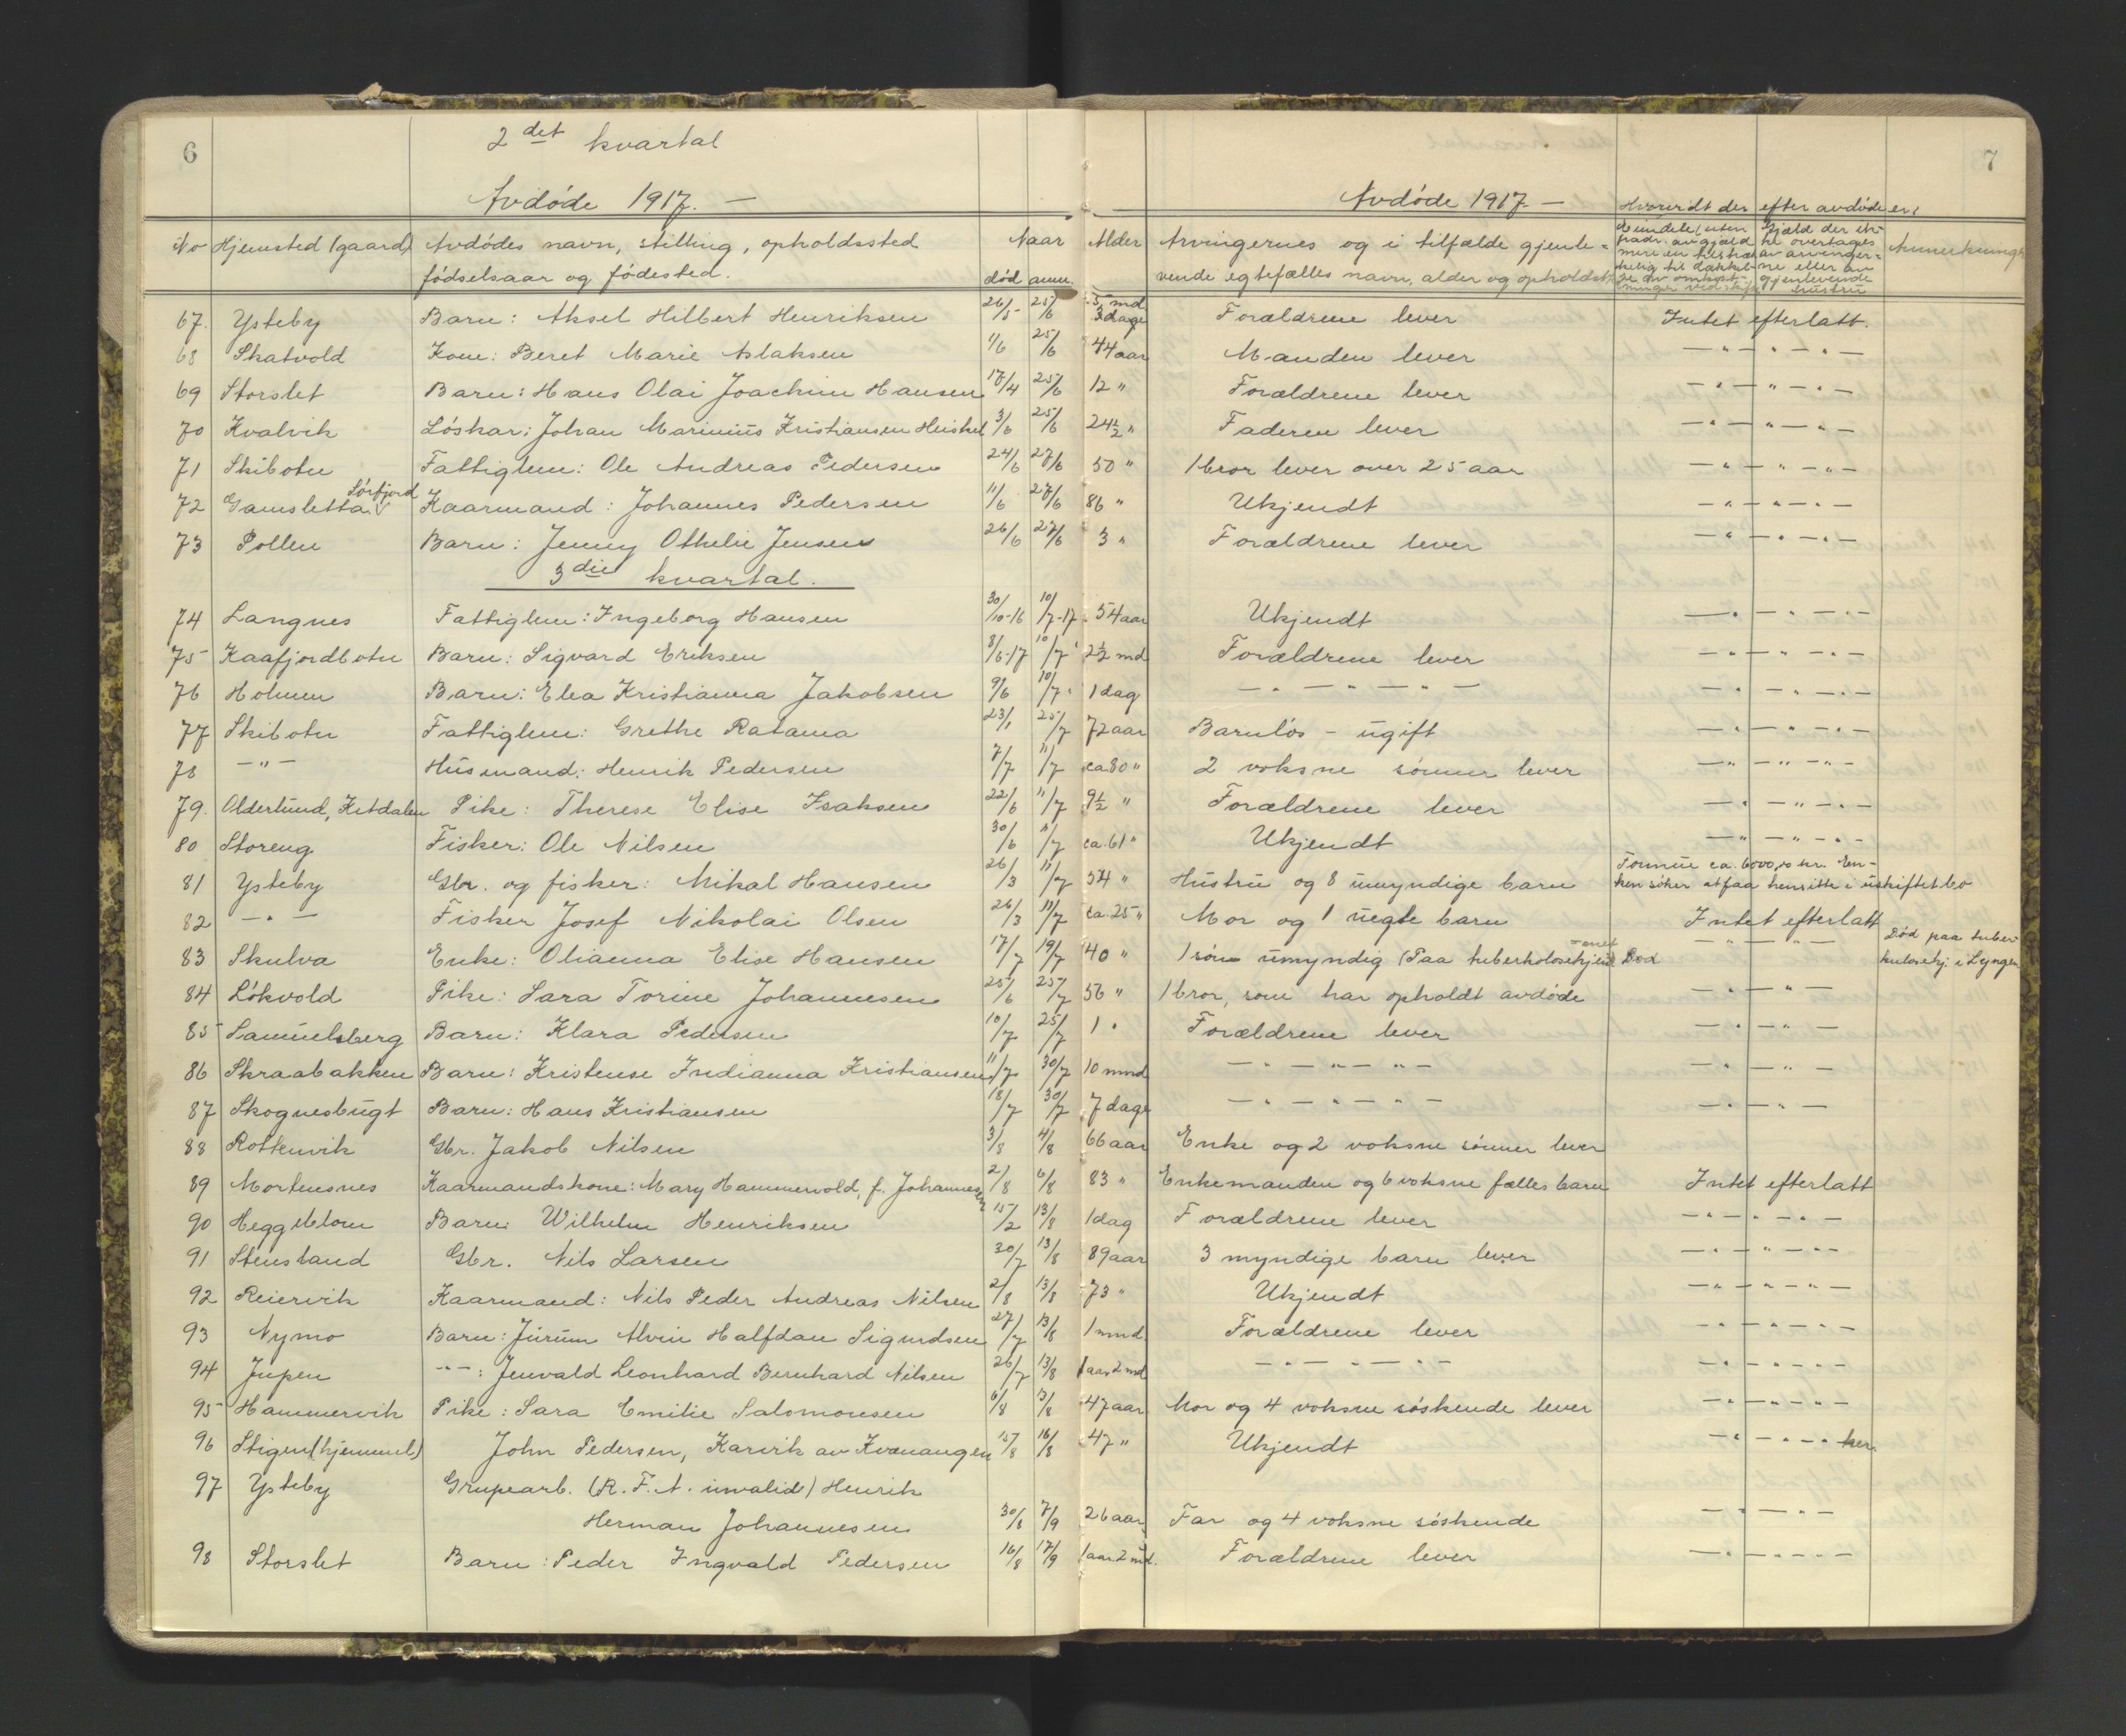 6
2det kvartal
Avdøde 1917. —
No Hjemsted (gaard) Avdødes navn, stilling, opholdssted Naar
fødselsaar og fødested. død anm.
67. Ysteby Barn: Aksel Hilbert Henriksen 26/5 25/6
68 Skatvold Kone: Beret Marie Aslaksen 1/6 25/6
69 Storslet Barn: Hans Olai Joachim Hansen 17/4 25/6
70 Kvalvik Løskar: Johan Marinius Kristiansen Heiskel 3/6 25/6
71 Skibotn Fattiglem: Ole Andreas Pedersen 24/6 27/6
72 Gamsletta Sørfjord Kaarmand: Johannes Pedersen 11/6 27/6
73 Pollen Barn: Jenny Othelie Jensen 26/6 27/6
3die kvartal.
74 Langnes Fattiglem: Ingeborg Hansen 30/10-16 10/7-17
75 Kaafjordbotn Barn: Sigvard Eriksen 8/6-17 10/7
76 Holmen Barn: Elea Kristianna Jakobsen 9/6 10/7
77 Skibotn Fattiglem: Grethe Ratama 23/1 25/7
78 —"— Husmand: Henrik Pedersen 7/7 11/7
79. Olderlund, Kitdalen Pike: Therese Elise Isaksen 22/6 11/7
80 Storeng Fisker: Ole Nilsen 30/6 11/7
81 Ysteby Gbr. og fisker: Mikal Hansen 26/3 11/7
82 —"— Fisker Josef Nikolai Olsen 26/3 11/7
83 Skulva Enke: Olianna Elise Hansen 17/7 19/7
84 Løkvold Pike: Sara Torine Johannesen 25/6 25/7
85 Samuelsberg Barn: Klara Pedersen 10/7 25/7
86 Skraabakken Barn: Kristense Indianna Kristiansen 11/7 30/7
87 Skognesbugt Barn: Hans Kristiansen 18/7 30/7
88 Rottenvik Gbr. Jakob Nilsen 3/8 4/8
89 Mortensnes Kaarmandskone: Mary Hammervold, f. Johannesen 2/8 6/8
90 Heggelblom Barn: Wilhelm Henriksen 15/2 13/8
91 Stensland Gbr. Nils Larsen 30/7 13/8
92 Reiervik Kaarmand: Nils Peder Andreas Nilsen 2/8 13/8
93 Nymo Barn: Jurum Alvin Halfdan Sigurdsen 27/7 13/8
94 Jupen -"-: Jenvald Leonhard Bernhard Nilsen 26/7 13/8
95 Hammervik Pike: Sara Emilie Salomonsen 6/8 13/8
96 Stigen (hjemmel) John Pedersen, Karvik av Kvænangen 15/8 16/8
97 Ysteby Grupearb. (R.F.A. invalid) Henrik
Herman Johannesen 30/8 7/9
98 Storslet Barn: Peder Ingvald Pedersen 16/8 17/9
7
Avdøde 1917 —
Hvorvidt der efter avdøde er:
Alder Arvingernes og i tilfælde gjenle-
vende egtefælles navn, alder og opholdst.
Anmerkning
gjæld der ik-
ke overtages
av arvinger-
ne eller av
gjenlevende
hustru
5 md 3 dage Forældrene lever Intet efterlatt.
44 aar Manden lever —"—"—"—
12 " Forældrene lever —"—"—"—
24½ " Faderen lever —"—"—"—
50 " 1 bror lever over 25 aar —"—"—"—
86 " Ukjendt —"—"—"—
3 " Forældrene lever —"—"—"—
54 aar Ukjendt —"—"—"—
2½ md Forældrene lever —"—"—"—
1 dag —"—"—"— —"—"—"—
72 aar Barnløs - ugift —"—"—"—
ca. 80 " 2 voksne sønner lever —"—"—"—
9½ " Forældrene lever —"—"—"—
ca. 61 " Ukjendt —"—"—"—
54 " Hustru og 8 umyndige barn Formue ca. 6000,00 kr. En-
ken søker at faa hensitte i uskiftet bo
ca. 25 " Mor og 1 uegte barn Intet efterlatt
40 " 1 søn umyndig (Paa tuberkolosehjemmet) Død —"—"— Død paa tuber-
kulosehj. i Lyngen
56 " 1 bror, som har opholdt avdøde —"—"—
1 " Forældrene lever —"—"—
10 mnd —"—"—"— —"—"—
7 dage —"—"—"— —"—"—
66 aar Enke og 2 voksne sønner lever
83 " Enkemanden og 6 voksne fælles barn Intet efterlatt
1 dag Forældrene lever —"—"—"—
89 aar 3 myndige barn lever —"—"—"—
73 " Ukjendt —"—"—"—
1 mnd Forældrene lever —"—"—"—
1 aar 2 md —"—"—"— —"—"—"—
47 aar Mor og 4 voksne søskende lever —"—"—"—
47 " Ukjendt —"—"—"— her
26 aar Far og 4 voksne søskende —"—"—
1 aar 2 md. Forældrene lever —"—"—"—